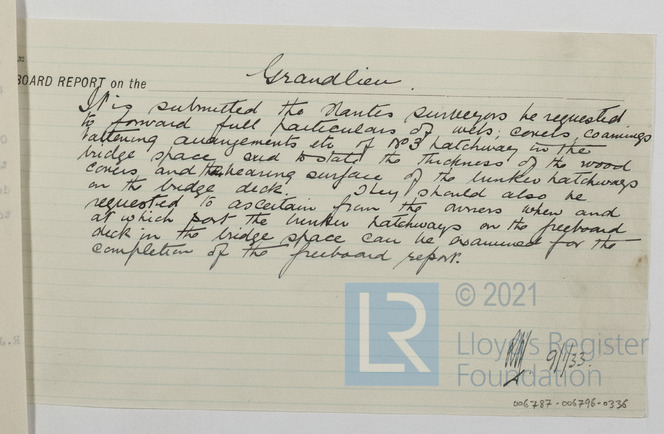 BOARD REPORT on the
Grandlieu.
It is submitted the Nantes surveyors be requested
to forward full particulars of webs, covers, coamings
battening arrangements etc of No 3 hatchway in the
bridge space, and to state the thickness of the wood
covers, and the bearing surface of the bunker hatchways
on the bridge deck. They should also be
requested to ascertain from the owners when and
at which port the bunker hatchways on the freeboard
deck in the bridge space can be examined for the
completion of the freeboard report.
© 2021
LR
Lloyd's Register
Foundation
9/1/33.
006787-006796-0336